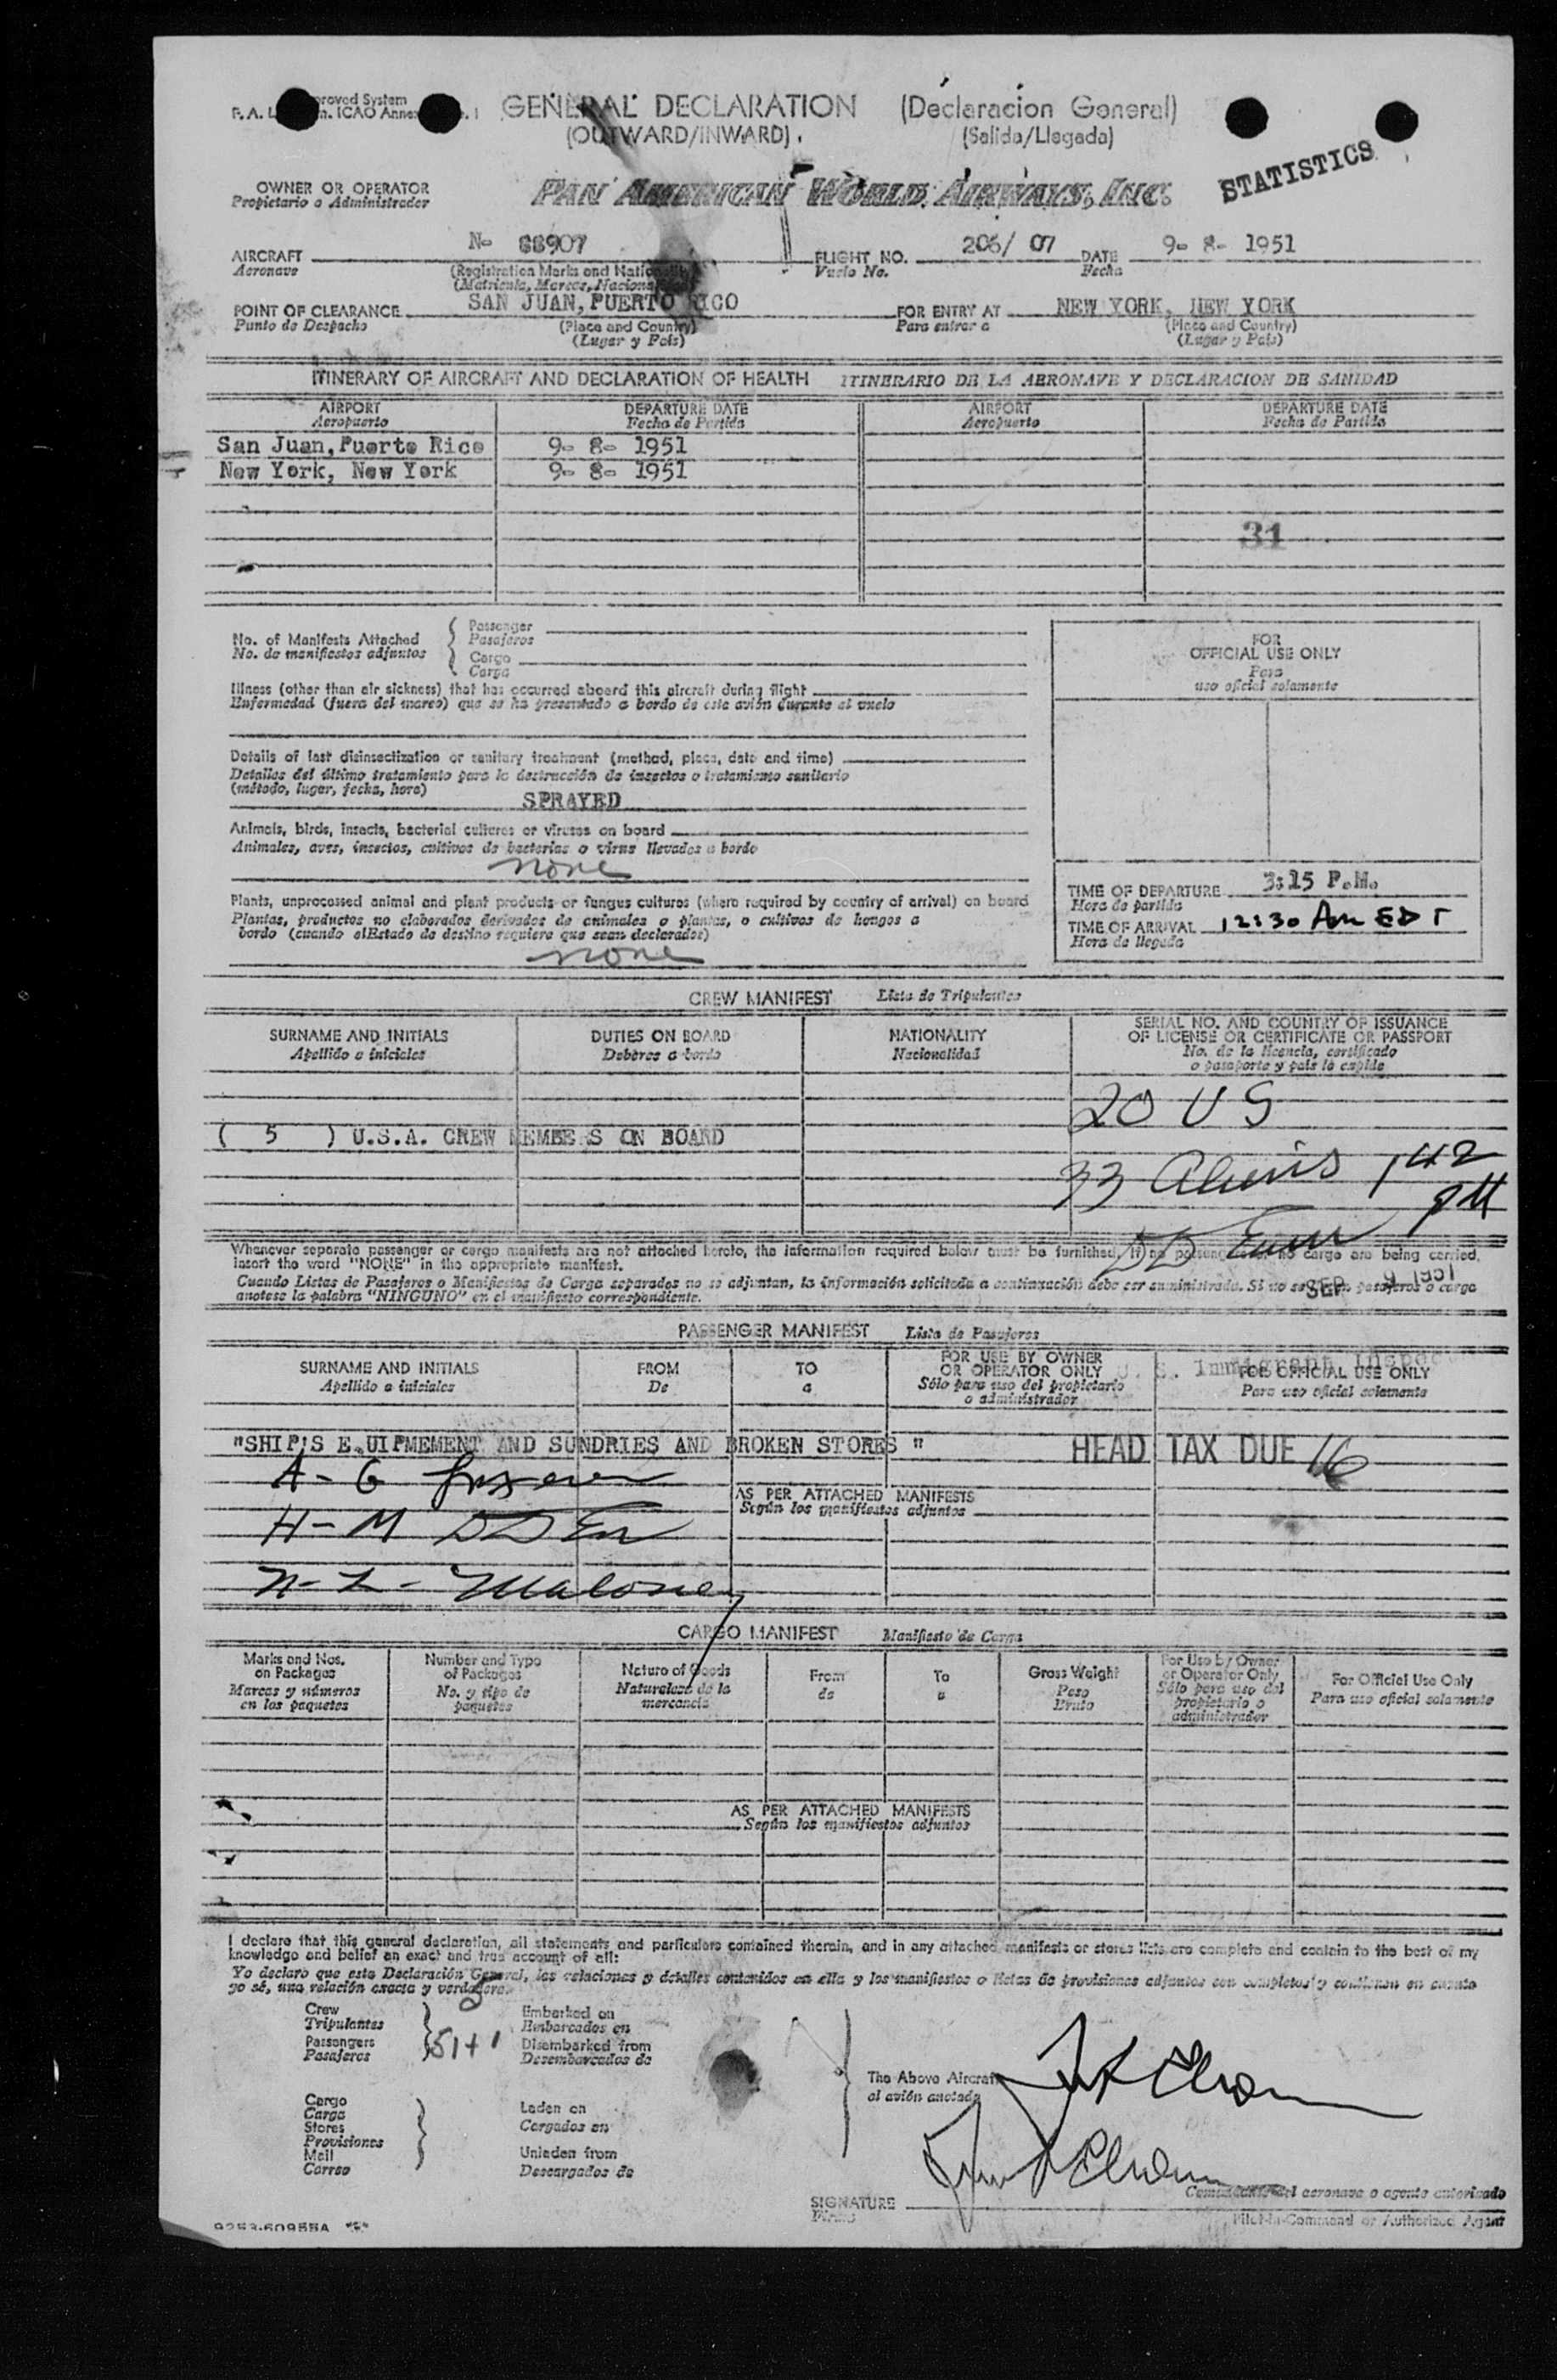 GENERAL DECLARATION (Declaracion General)
(OUTWARD/INWARD) (Salida/Llegada)
STATISTICS
OWNER OR OPERATOR
Propietario o Administrador
PAN AMERICAN WORLD AIRWAYS, INC.
AIRCRAFT N- 88907 FLIGHT NO. 206/ 07 DATE 9- 8- 1951
Aeronave Vuelo No. Fecha
(Registration Marks and Nationality)
(Matricula, Marcas, Nacionalidad)
POINT OF CLEARANCE SAN JUAN, PUERTO RICO FOR ENTRY AT NEW YORK, NEW YORK
Punto de Despacho (Place and Country) Para entrar a (Place and Country)
(Lugar y País) (Lugar y País)
ITINERARY OF AIRCRAFT AND DECLARATION OF HEALTH ITINERARIO DE LA AERONAVE Y DECLARACION DE SANIDAD
AIRPORT DEPARTURE DATE AIRPORT DEPARTURE DATE
Aeropuerto Fecha de Partida Aeropuerto Fecha de Partida
San Juan, Puerto Rico 9- 8- 1951
New York, New York 9- 8- 1951
31
No. of Manifests Attached
No. de manifiestos adjuntos
Passenger
Pasajeros
Cargo
Carga
FOR
OFFICIAL USE ONLY
Para
uso oficial solamente
Illness (other than air sickness) that has occurred aboard this aircraft during flight
Enfermedad (fuera del mareo) que se ha presentado a bordo de este avión durante el vuelo
Details of last disinsectization or sanitary treatment (method, place, date and time)
Detalles del último tratamiento para la destrucción de insectos o tratamiento sanitario
(método, lugar, fecha, hora)
SPRAYED
Animals, birds, insects, bacterial cultures or viruses on board
Animales, aves, insectos, cultivos de bacterias o virus llevados a bordo
none
Plants, unprocessed animal and plant products or fungus cultures (where required by country of arrival) on board
Plantas, productos no elaborados derivados de animales o plantas, o cultivos de hongos a
bordo (cuando el Estado de destino requiera que sean declarados)
none
TIME OF DEPARTURE 3:15 P.M.
Hora de partida
TIME OF ARRIVAL 12:30 Am EDT
Hora de llegada
CREW MANIFEST Lista de Tripulantes
SURNAME AND INITIALS DUTIES ON BOARD NATIONALITY SERIAL NO. AND COUNTRY OF ISSUANCE
OF LICENSE OR CERTIFICATE OR PASSPORT
Apellido e iniciales Deberes a bordo Nacionalidad No. de la licencia, certificado
o pasaporte y país lo expide
20 US
( 5 ) U.S.A. CREW MEMBERS ON BOARD
33 Aliens 142
Whenever separate passenger or cargo manifests are not attached hereto, the information required below must be furnished. If no passengers or cargo are being carried,
insert the word "NONE" in the appropriate manifest.
Cuando Listas de Pasajeros o Manifiestos de Carga separados no se adjuntan, la información solicitada a continuación debe ser suministrada. Si no se pasajeros o carga
anotese la palabra "NINGUNO" en el manifiesto correspondiente.
SEP 9 1951
PASSENGER MANIFEST Lista de Pasajeros
SURNAME AND INITIALS FROM TO FOR USE BY OWNER
OR OPERATOR ONLY FOR OFFICIAL USE ONLY
Apellido e iniciales De a Sólo para uso del propietario
o administrador Para uso oficial solamente
U. S. Immigrant Inspec
"SHIP'S E UIPMEMENT AND SUNDRIES AND BROKEN STORES " HEAD TAX DUE 16
A - G
AS PER ATTACHED MANIFESTS
Según los manifiestos adjuntos
H - M
N - Z - Maloney
CARGO MANIFEST Manifiesto de Carga
Marks and Nos.
on Packages
Marcas y números
en los paquetes
Number and Type
of Packages
No. y tipo de
paquetes
Nature of Goods
Naturaleza de la
mercancía
From
de
To
a
Gross Weight
Peso
Bruto
For Use by Owner
or Operator Only
Sólo para uso del
propietario o
administrador
For Official Use Only
Para uso oficial solamente
AS PER ATTACHED MANIFESTS
Según los manifiestos adjuntos
I declare that this general declaration, all statements and particulars contained therein, and in any attached manifests or stores lists are complete and contain to the best of my
knowledge and belief an exact and true account of all:
Yo declaro que esta Declaración General, las relaciones y detalles contenidos en ella y los manifiestos o listas de provisiones adjuntos son completos y contienen en cuanto
yo sé, una relación exacta y verdadera.
Crew 5 Embarked on
Tripulantes Embarcados en
Passengers 51+1 Disembarked from
Pasajeros Desembarcados de
The Above Aircraft
el avión anotado
Cargo
Carga
Stores
Provisiones
Mail
Correo
Laden on
Cargados en
Unladen from
Descargados de
SIGNATURE
Firma
del aeronave o agente autorizado
Pilot-in-Command or Authorized Agent